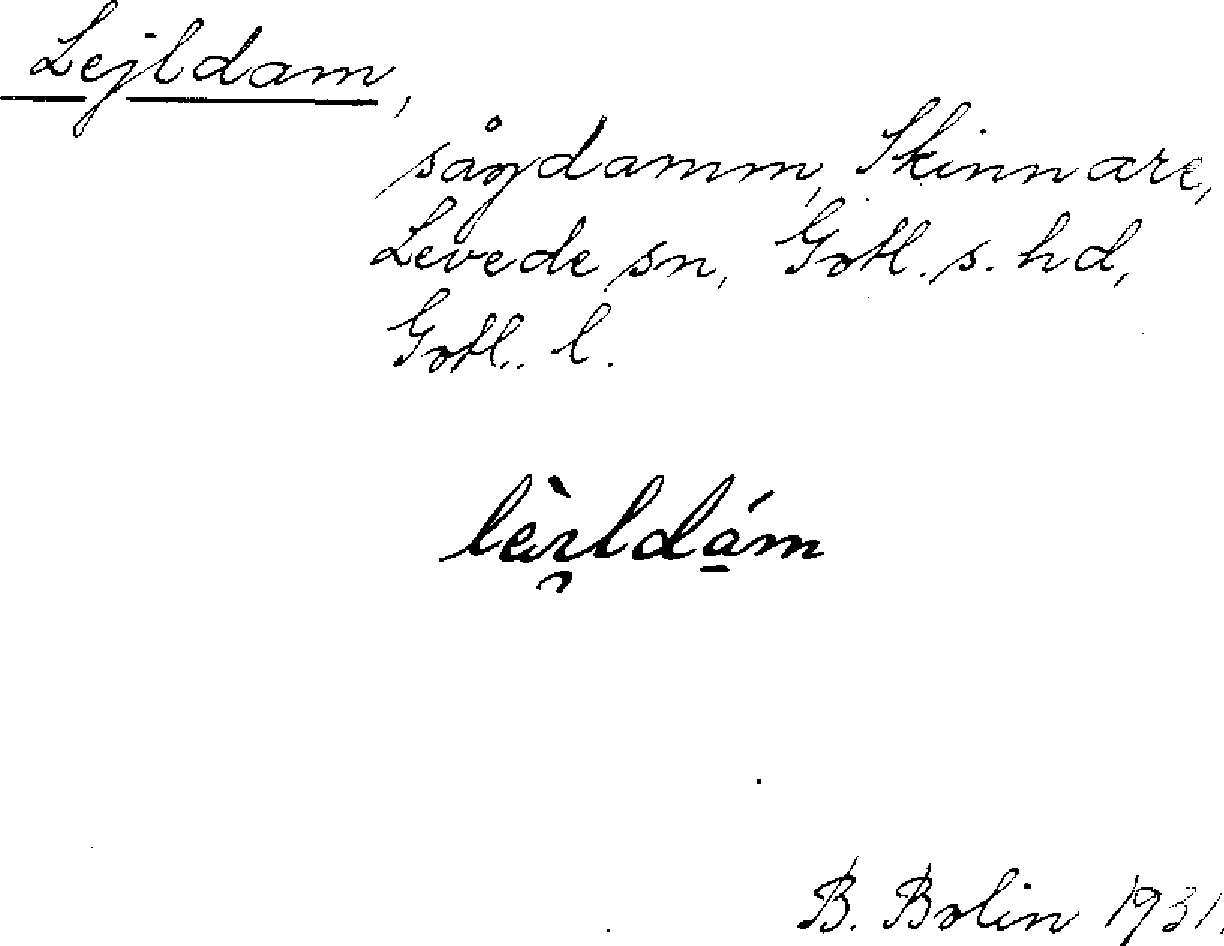 Lejldam,
sågdamm, Skinnare,
Levede sn, Gotl. s. hd,
Gotl. l.
B. Bolin 1931.